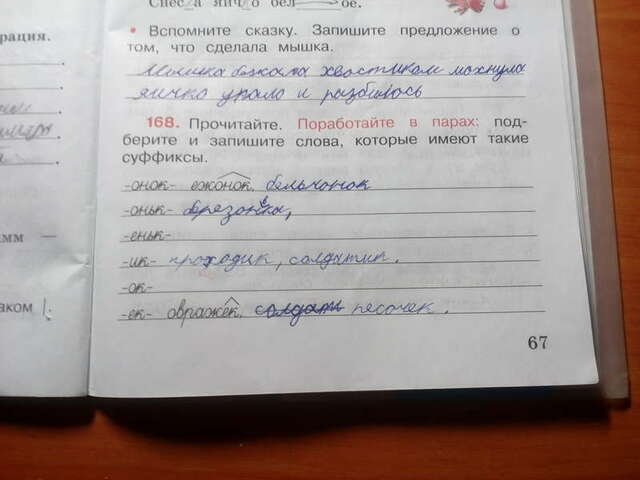 Снес_а яич_о бел_ое.
рация.
• Вспомните сказку. Запишите предложение о
том, что сделала мышка.
Мышка бежала хвостиком махнула
яичко упало и разбилось
168. Прочитайте. Поработайте в парах: под-
берите и запишите слова, которые имеют такие
суффиксы.
-онок- ежонок, бельчонок
-оньк- березонька,
-еньк-
-ик- проходик, солдатик.
-ок-
-ек- овражек, солдат песочек.
амм —
аком
67